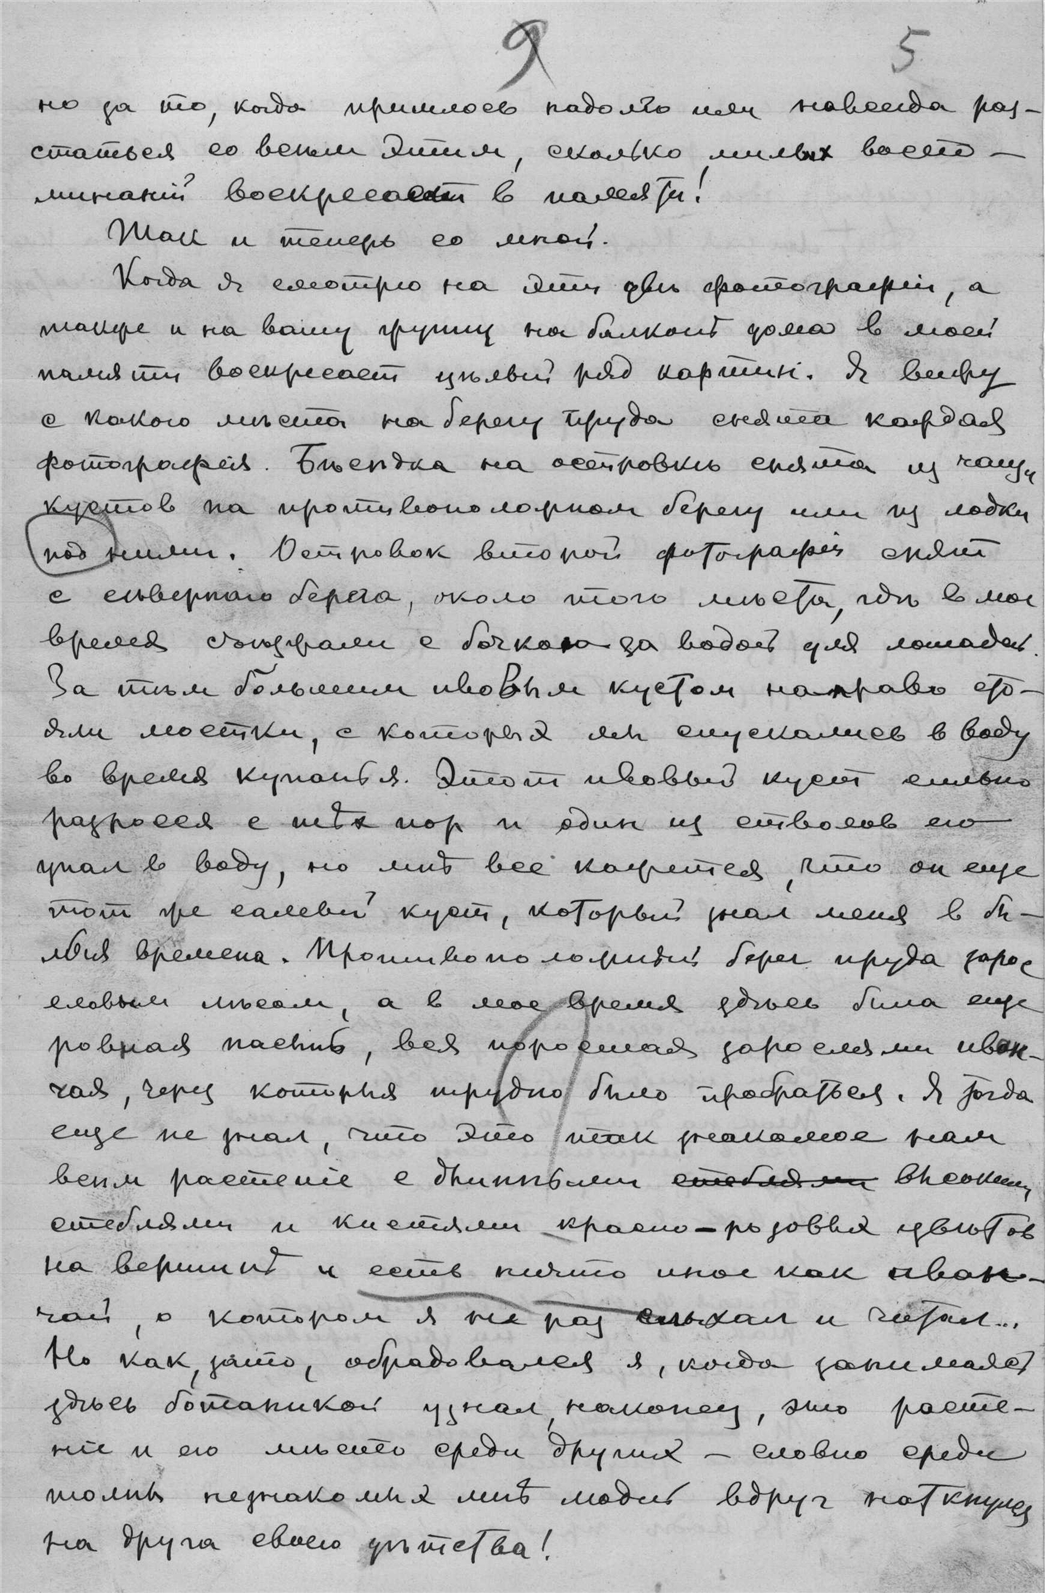 9 5
но за то, когда пришлось надолго или навсегда раз-
статься со всѣм этим, сколько милых воспо-
минаній воскресает в памяти!
Так и теперь со мной.
Когда я смотрю на эти двѣ фотографіи, а
также и на вашу группу на балконѣ дома в моей
памяти воскресает цѣлый ряд картин. Я вижу
с какого мѣста на берегу пруда снята каждая
фотографія. Бѣседка на островкѣ снята из чащи
кустов на противоположном берегу или из лодки
под ними. Островок второй фотографіи снят
с сѣвернаго берега, около того мѣста, гдѣ в мое
время съѣзжали с бочкою за водой для лошадей.
За тѣм большим ивовым кустом направо сто-
яли мостки, с которых мы спускались в воду
во время купанья. Этот ивовый куст сильно
разросся с тѣх пор и один из стволов его
упал в воду, но мнѣ все кажется, что он еще
тот же самый куст, который знал меня в бы-
лыя времена. Противоположный берег пруда зарос
еловым лѣсом, а в мое время здѣсь была еще
ровная пасѣка, вся поросшая зарослями иван-
чая, через которыя трудно было пробраться. Я тогда
еще не знал, что это так знакомое нам
всѣм растеніе с длинными стеблями высокими
стеблями и кистями красно-розовых цвѣтов
на вершинѣ и есть ничто иное как иван-
чай, о котором я не раз слыхал и читал...
Но как, зато, обрадовался я, когда занимаясь
здѣсь ботаникой узнал, наконец, это расте-
ніе и его мѣсто среди других – словно среди
толпы незнакомых мнѣ людей вдруг наткнулся
на друга своего дѣтства!